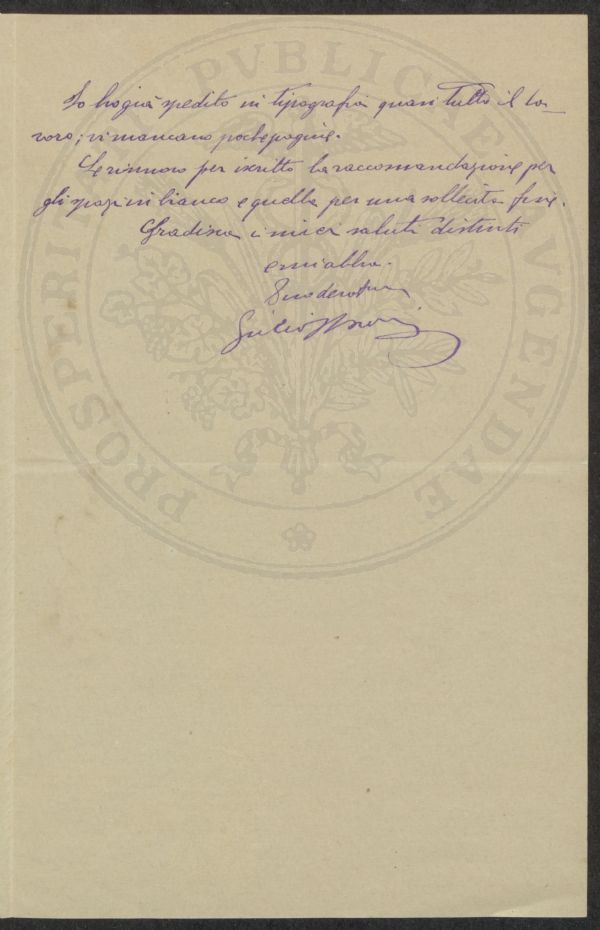 PROSPERITATI PVBLICAE AVGENDAE
Io ho già spedito in tipografia quasi tutto il la-
voro; vi mancano poche pagine.
Le rinnovo per iscritto la raccomandazione per
gli spazi in bianco e quella per una sollecita fine.
Gradisca i miei saluti distinti
e mi abbia.
Suo devotmo
Giulio